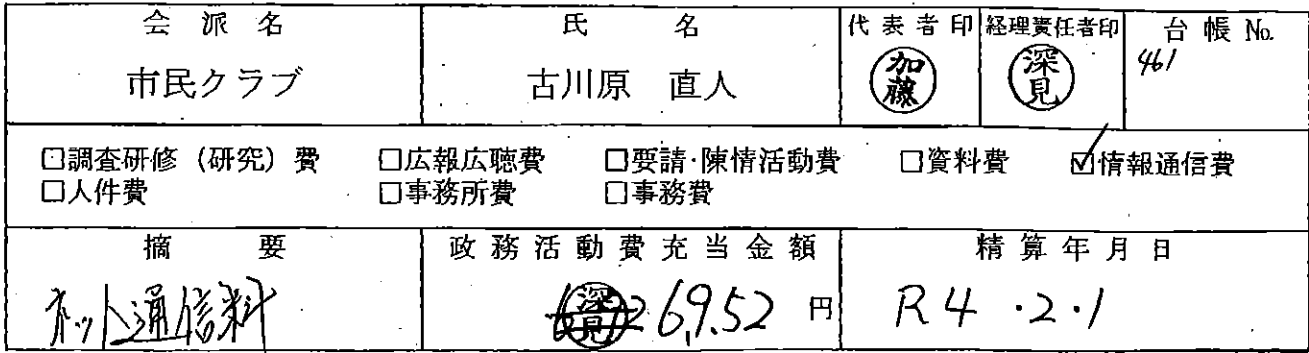 会派名 氏名 代表者印 経理責任者印 台帳No.
市民クラブ 古川原 直人 加藤 深見 461
□調査研修（研究）費 □広報広聴費 □要請・陳情活動費 □資料費 ☑情報通信費
□人件費 □事務所費 □事務費
摘要 政務活動費充当金額 精算年月日
ネット通信料 深見 6,952 円 R4・2・1